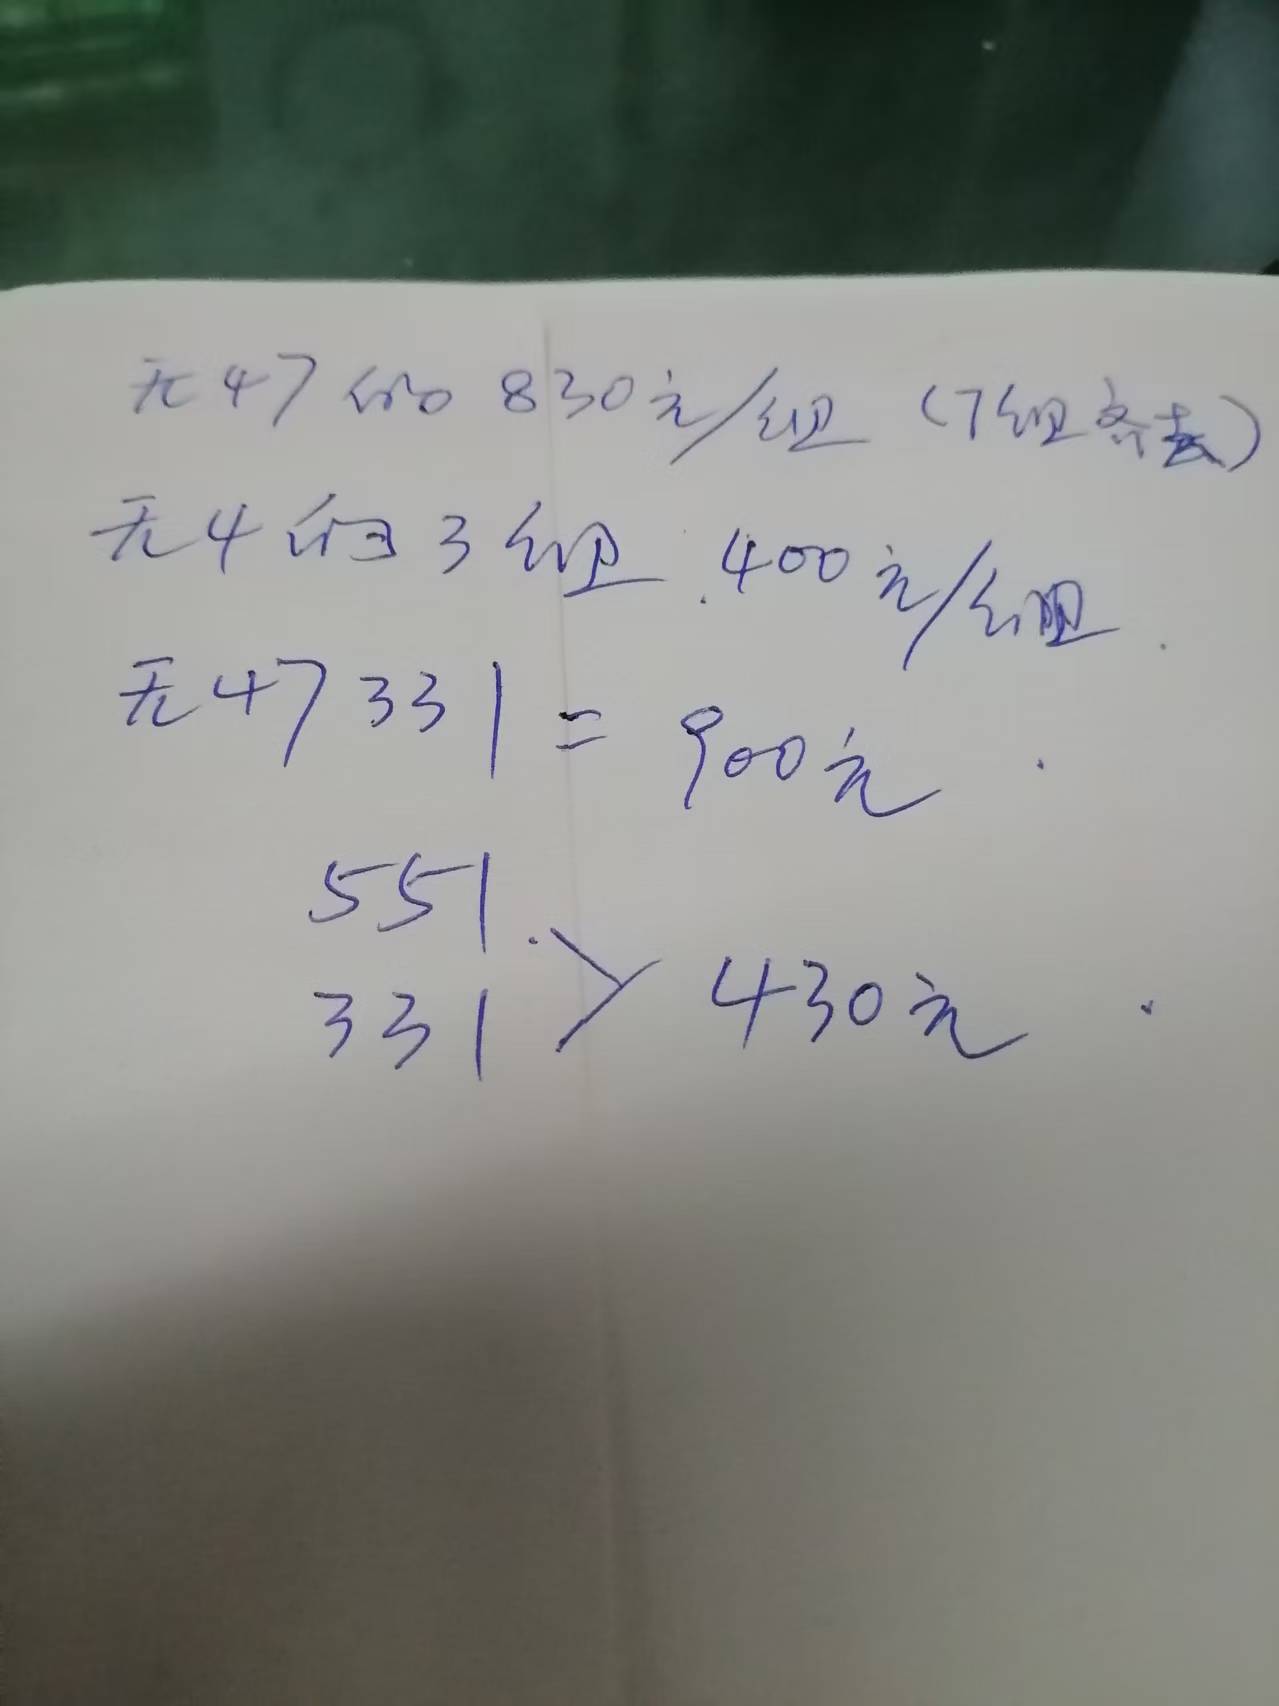 无47的830元/组（7组齐去）
无4的3组.400元/组.
无47331=900元.
551.
331>430元.